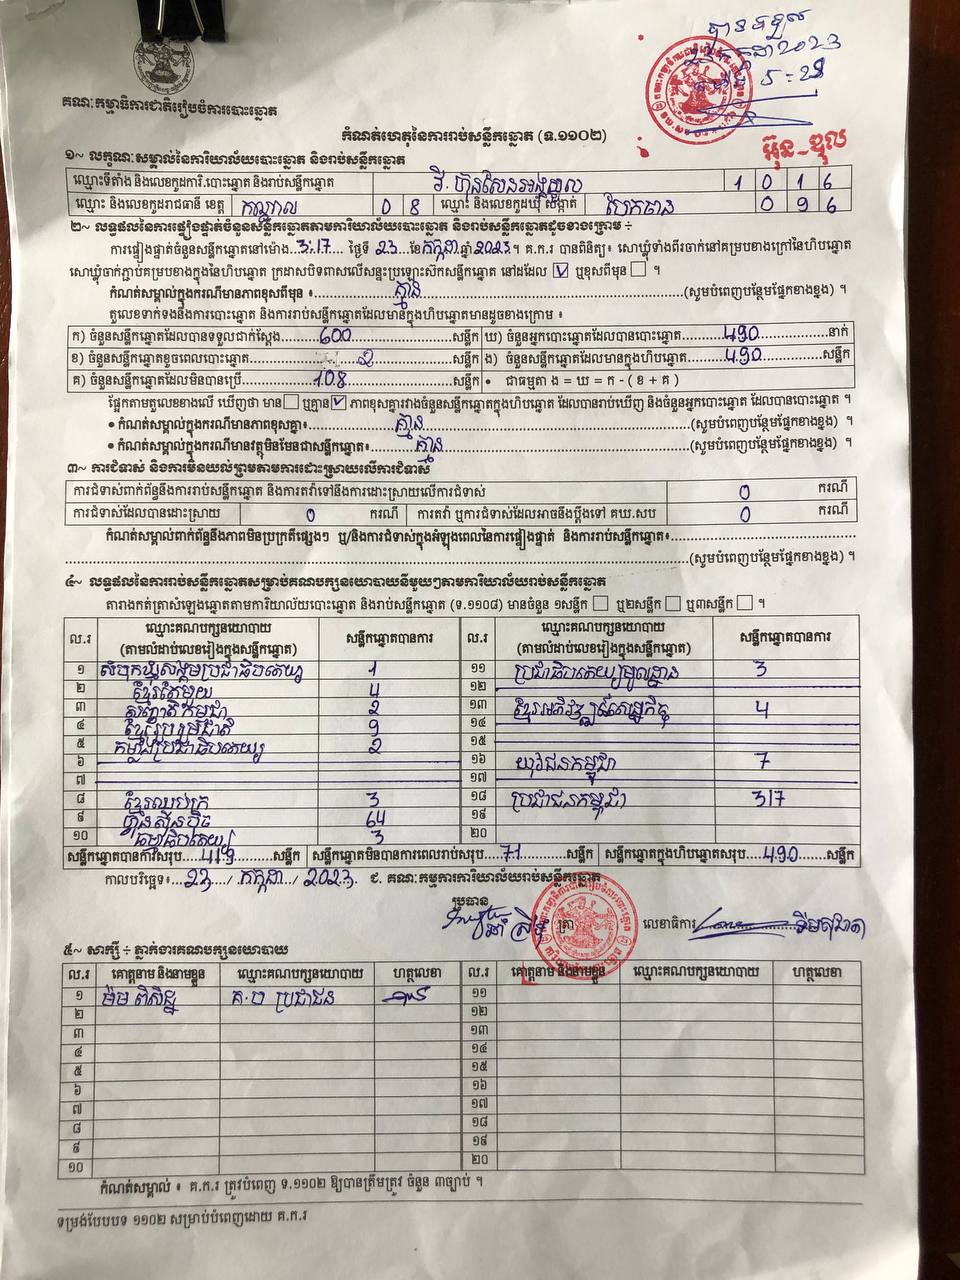 បានទទួល
២៣ កក្កដា 2023
ម៉ោង 5:28
អ៊ុន-ឌុល
គណៈកម្មាធិការជាតិរៀបចំការបោះឆ្នោត
កំណត់ហេតុនៃការរាប់សន្លឹកឆ្នោត (ទ.១១០២)
១~ លក្ខណៈសម្គាល់នៃការិយាល័យបោះឆ្នោត និងរាប់សន្លឹកឆ្នោត
ឈ្មោះទីតាំង និងលេខកូដការិ.បោះឆ្នោត និងរាប់សន្លឹកឆ្នោត វិ. ហ៊ុនសែនអង្គ 1 0 1 6
ឈ្មោះ និងលេខកូដរាជធានី ខេត្ត កណ្តាល 0 8 ឈ្មោះ និងលេខកូដឃុំ សង្កាត់ បែកចាន 0 9 6
២~ លទ្ធផលនៃការផ្ទៀងផ្ទាត់ចំនួនសន្លឹកឆ្នោតតាមការិយាល័យបោះឆ្នោត និងរាប់សន្លឹកឆ្នោតដូចខាងក្រោម ÷
ការផ្ទៀងផ្ទាត់ចំនួនសន្លឹកឆ្នោតនៅម៉ោង..3:17.... ថ្ងៃទី ..23..ខែ កក្កដា ឆ្នាំ 2023។ គ.ក.រ បានពិនិត្យ៖ សោឃ្លុំទាំងពីរចាក់នៅគម្របខាងក្រៅនៃហិបឆ្នោត
សោឃ្លុំចាក់ភ្ជាប់គម្របខាងក្នុងនៃហិបឆ្នោត ក្រដាសបិទពាសលើសន្ទះប្រឡោះស៊កសន្លឹកឆ្នោត នៅដដែល ☑ ឬខុសពីមុន ☐ ។
កំណត់សម្គាល់ក្នុងករណីមានភាពខុសពីមុន ៖ គ្មាន (សូមបំពេញបន្ថែមផ្នែកខាងខ្នង) ។
តួលេខទាក់ទងនឹងការបោះឆ្នោត និងការរាប់សន្លឹកឆ្នោតដែលមានក្នុងហិបឆ្នោតមានដូចខាងក្រោម ៖
ក) ចំនួនសន្លឹកឆ្នោតដែលបានទទួលជាក់ស្តែង 600 សន្លឹក ឃ) ចំនួនអ្នកបោះឆ្នោតដែលបានបោះឆ្នោត 490 នាក់
ខ) ចំនួនសន្លឹកឆ្នោតខូចពេលបោះឆ្នោត 2 សន្លឹក ង) ចំនួនសន្លឹកឆ្នោតដែលមានក្នុងហិបឆ្នោត 490 សន្លឹក
គ) ចំនួនសន្លឹកឆ្នោតដែលមិនបានប្រើ 108 សន្លឹក • ជាធម្មតា ង = ឃ = ក - ( ខ + គ )
ផ្អែកតាមតួលេខខាងលើ ឃើញថា មាន ☐ ឬគ្មាន ☑ ភាពខុសគ្នារវាងចំនួនសន្លឹកឆ្នោតក្នុងហិបឆ្នោត ដែលបានរាប់ឃើញ និងចំនួនអ្នកបោះឆ្នោត ដែលបានបោះឆ្នោត ។
• កំណត់សម្គាល់ក្នុងករណីមានភាពខុសគ្នា៖ គ្មាន (សូមបំពេញបន្ថែមផ្នែកខាងខ្នង) ។
• កំណត់សម្គាល់ក្នុងករណីមានវត្ថុមិនមែនជាសន្លឹកឆ្នោត៖ គ្មាន (សូមបំពេញបន្ថែមផ្នែកខាងខ្នង) ។
៣~ ការជំទាស់ និងការមិនយល់ព្រមតាមការដោះស្រាយលើការជំទាស់
ការជំទាស់ពាក់ព័ន្ធនឹងការរាប់សន្លឹកឆ្នោត និងការតវ៉ាទៅនឹងការដោះស្រាយលើការជំទាស់ 0 ករណី
ការជំទាស់ដែលបានដោះស្រាយ 0 ករណី ការតវ៉ា ឬការជំទាស់ដែលអាចនឹងប្តឹងទៅ គឃ.សប 0 ករណី
កំណត់សម្គាល់ពាក់ព័ន្ធនឹងភាពមិនប្រក្រតីផ្សេងៗ ឬ/និងការជំទាស់ក្នុងអំឡុងពេលនៃការផ្ទៀងផ្ទាត់ និងការរាប់សន្លឹកឆ្នោត៖
(សូមបំពេញបន្ថែមផ្នែកខាងខ្នង) ។
៤~ លទ្ធផលនៃការរាប់សន្លឹកឆ្នោតសម្រាប់គណបក្សនយោបាយនីមួយៗតាមការិយាល័យរាប់សន្លឹកឆ្នោត
តារាងកត់ត្រាសំឡេងឆ្នោតតាមការិយាល័យបោះឆ្នោត និងរាប់សន្លឹកឆ្នោត (ទ.១១០៨) មានចំនួន ១សន្លឹក ☐ ឬ២សន្លឹក ☐ ឬ៣សន្លឹក ☐ ។
ល.រ ឈ្មោះគណបក្សនយោបាយ (តាមលំដាប់លេខរៀងក្នុងសន្លឹកឆ្នោត) សន្លឹកឆ្នោតបានការ ល.រ ឈ្មោះគណបក្សនយោបាយ (តាមលំដាប់លេខរៀងក្នុងសន្លឹកឆ្នោត) សន្លឹកឆ្នោតបានការ
១ សំបុកឃ្មុំសង្គមប្រជាធិបតេយ្យ 1 ១១ ប្រជាធិបតេយ្យមូលដ្ឋាន 3
២ ខ្មែរតែមួយ 4 ១២
៣ គ្រប់ជាតិកម្ពុជា 2 ១៣ ខ្មែរអភិវឌ្ឍន៍សេដ្ឋកិច្ច 4
៤ ខ្មែររួបរួមជាតិ 9 ១៤
៥ កម្លាំងប្រជាធិបតេយ្យ 2 ១៥
៦ ១៦ យុវជនកម្ពុជា 7
៧ ១៧
៨ ខ្មែរឈប់ក្រ 3 ១៨ ប្រជាជនកម្ពុជា 317
៩ ហ៊្វុនស៊ិនប៉ិច 64 ១៩
១០ ធម្មាធិបតេយ្យ 3 ២០
សន្លឹកឆ្នោតបានការសរុប 419 សន្លឹក សន្លឹកឆ្នោតមិនបានការពេលរាប់សរុប 71 សន្លឹក សន្លឹកឆ្នោតក្នុងហិបឆ្នោតសរុប 490 សន្លឹក
កាលបរិច្ឆេទ៖ 23 / កក្កដា / 2023 ជ. គណៈកម្មការការិយាល័យរាប់សន្លឹកឆ្នោត
ប្រធាន
ត្រា លេខាធិការ
៥~ សាក្សី ÷ ភ្នាក់ងារគណបក្សនយោបាយ
ល.រ គោត្តនាម និងនាមខ្លួន ឈ្មោះគណបក្សនយោបាយ ហត្ថលេខា ល.រ គោត្តនាម និងនាមខ្លួន ឈ្មោះគណបក្សនយោបាយ ហត្ថលេខា
១ ម៉ម ពិសិដ្ឋ គ.ប ប្រជាជន ១១
២ ១២
៣ ១៣
៤ ១៤
៥ ១៥
៦ ១៦
៧ ១៧
៨ ១៨
៩ ១៩
១០ ២០
កំណត់សម្គាល់ ៖ គ.ក.រ ត្រូវបំពេញ ទ.១១០២ ឱ្យបានត្រឹមត្រូវ ចំនួន ៣ច្បាប់ ។
ទម្រង់បែបបទ ១១០២ សម្រាប់បំពេញដោយ គ.ក.រ